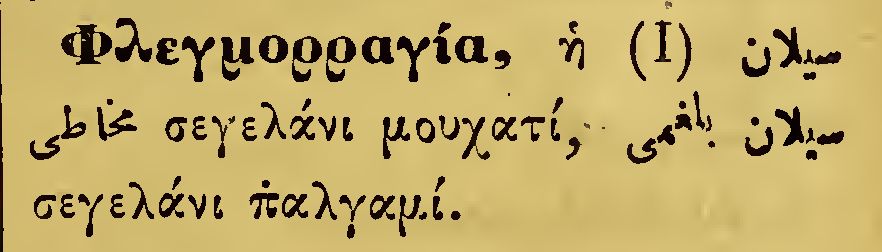 Φλεγμορραγία, ἡ (Ι) سيلان
مخاطى σεγελάνι μουχατί, سيلان بلغمى
σεγελάνι π̇αλγαμί.